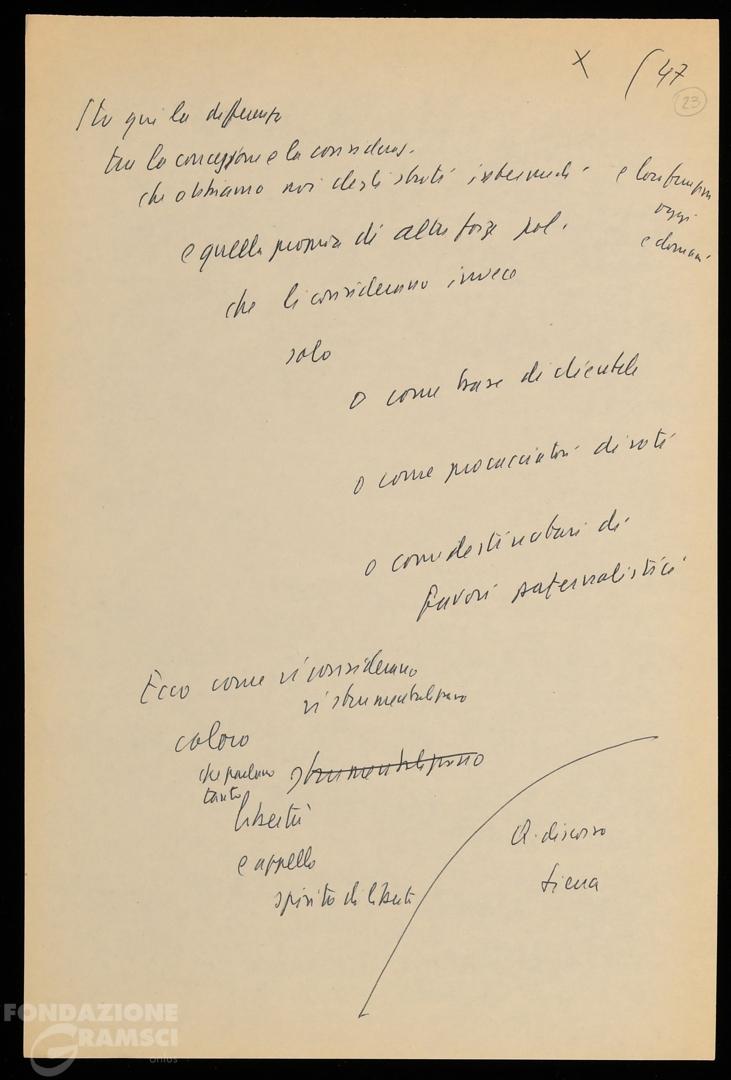 X
47
23
Sta qui la differenza
tra la concezione e la consideraz.
che abbiamo noi degli strati intermedi
e loro funzione
oggi
e domani
e quella propria di altre forze pol.
che li considerano invece
solo
o come base di clientele
o come procacciatori di voti
o come destinatari di
favori paternalistici
Ecco come vi considerano
vi strumentalizzano
coloro
che parlano
tanto
strumentalizzano
libertà
e appello
spirito di libertà
discorso
Siena
FONDAZIONE
GRAMSCI
onlus